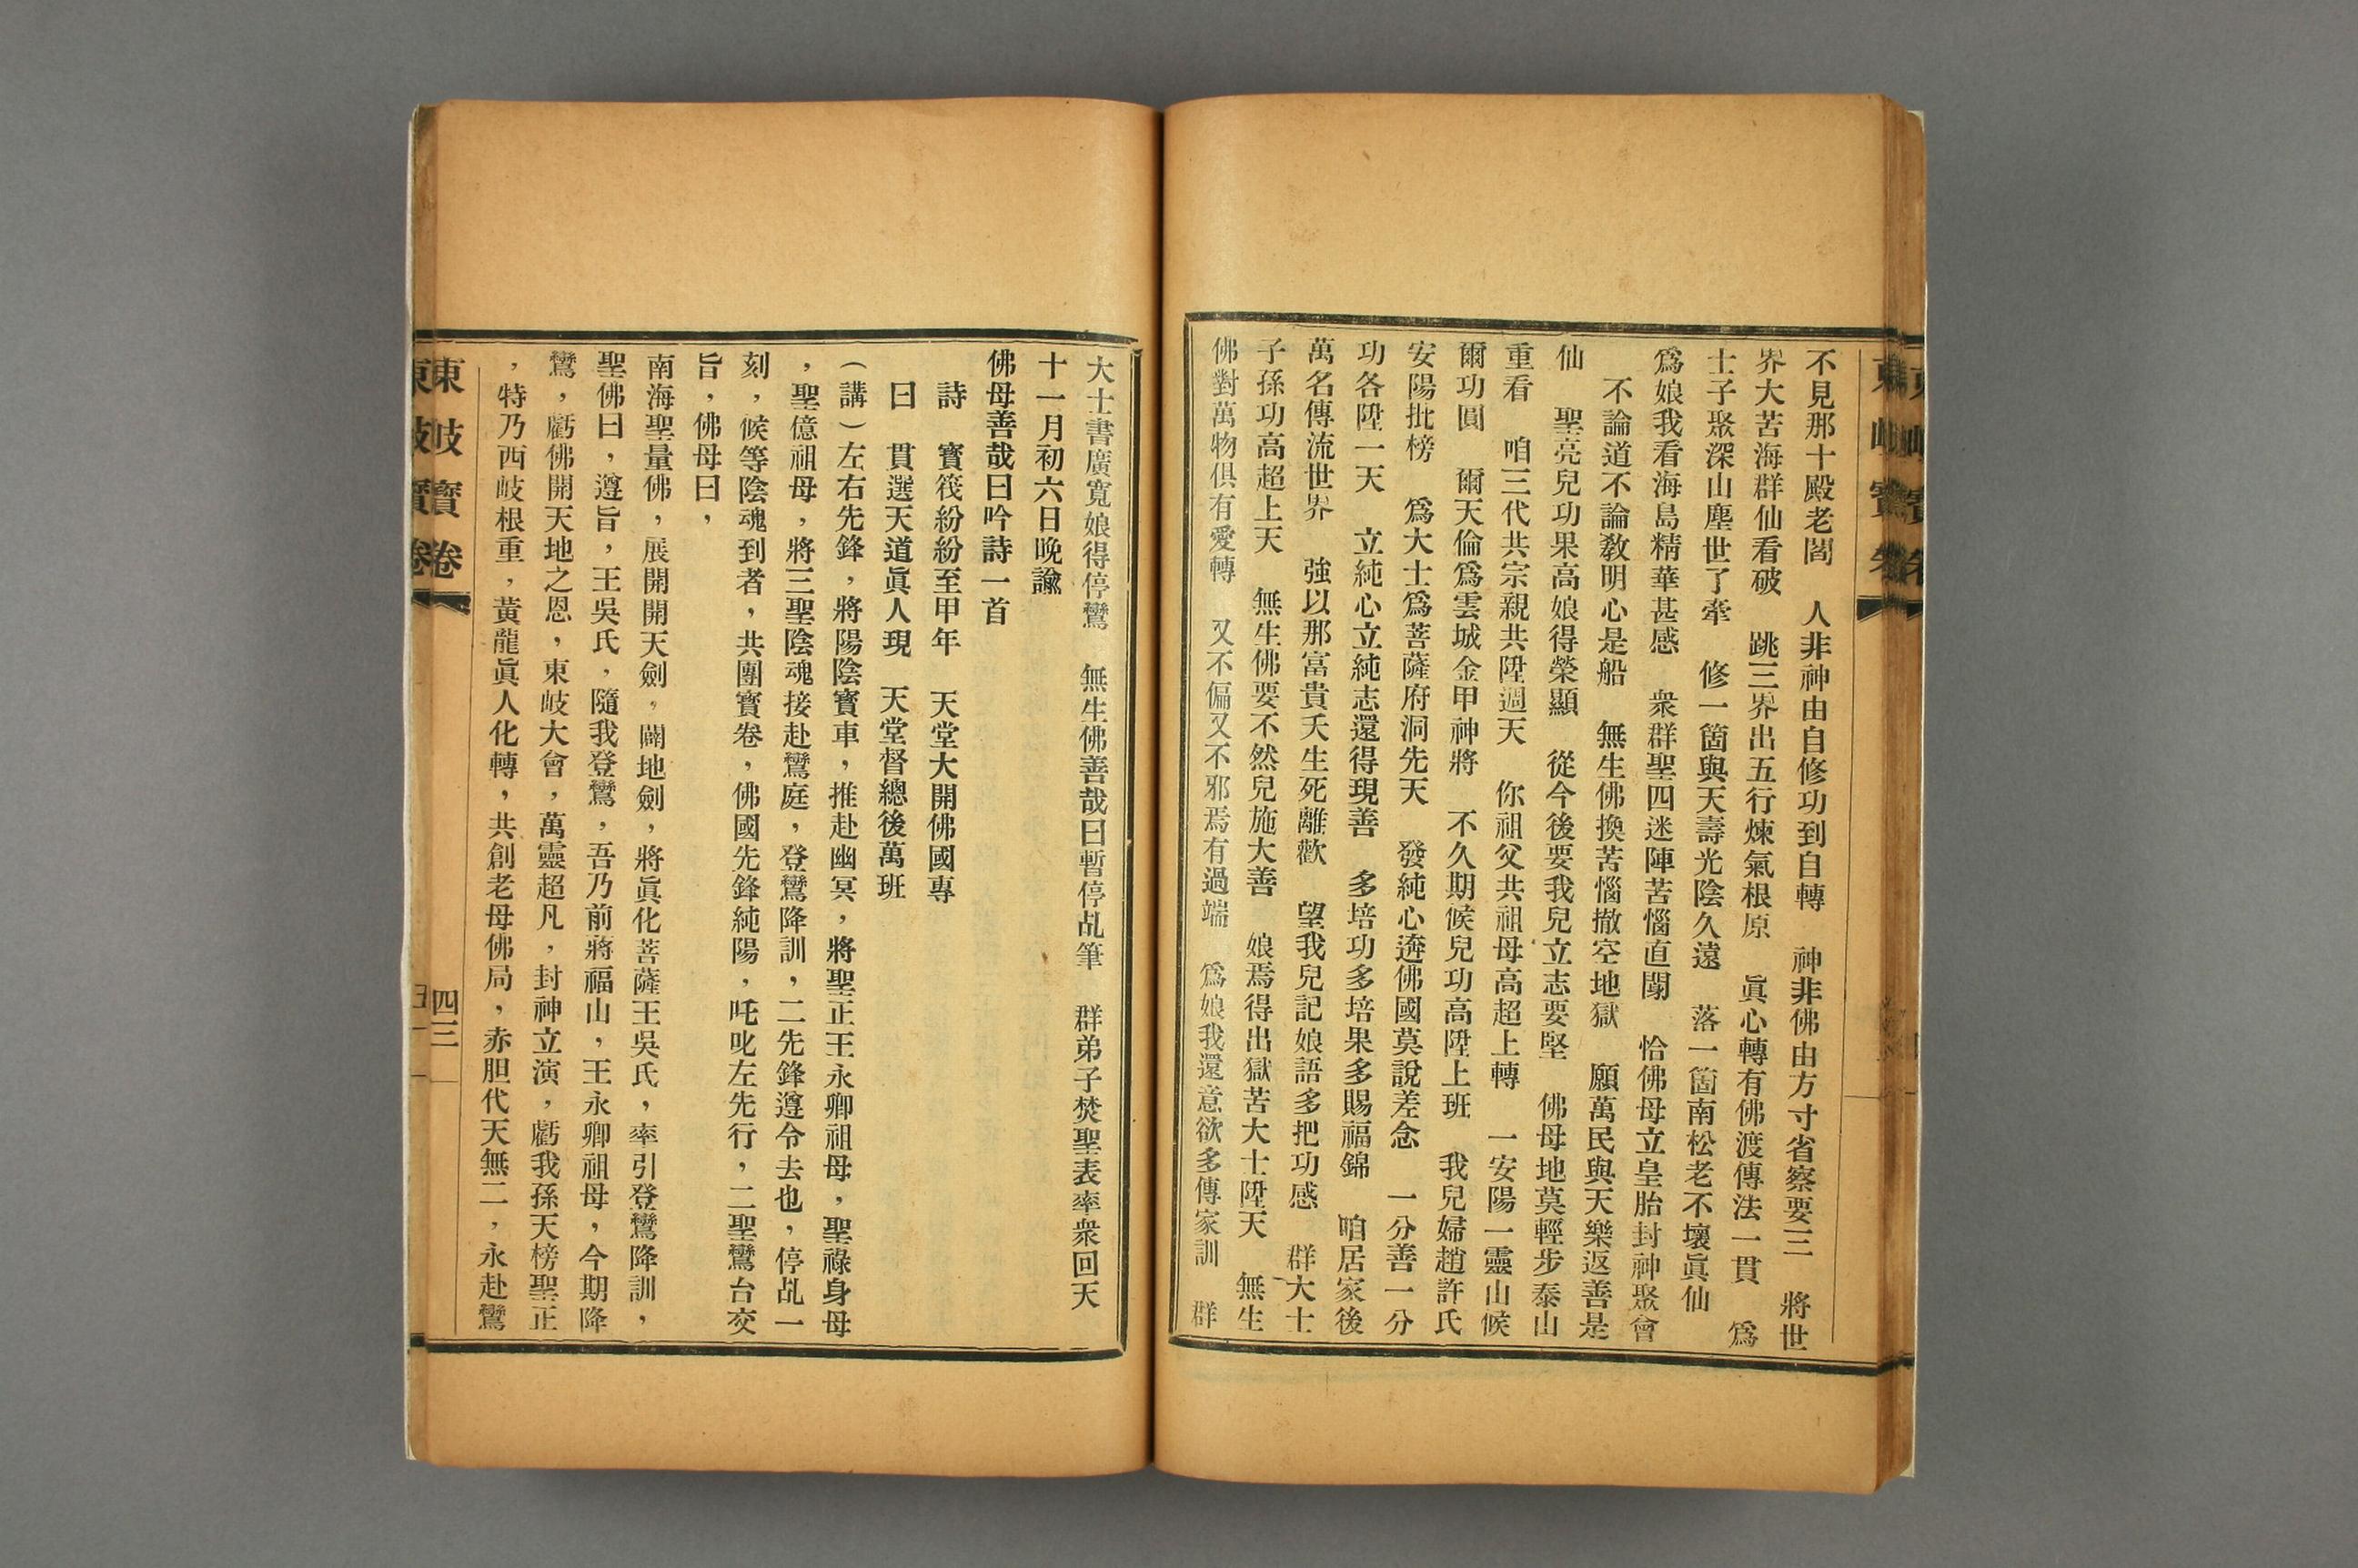 不見那十殿老閻　人非神由自修功到自轉　神非佛由方寸省察要三　將世
界大苦海群仙看破　跳三界出五行煉氣根原　眞心轉有佛渡傳法一貫　爲
士子聚深山塵世了牽　修一箇與天壽光陰久遠　落一箇南松老不壞眞仙
爲娘我看海島精華甚感　衆群聖四迷陣苦惱直闖　恰佛母立皇胎封神聚會
不論道不論教明心是船　無生佛換苦惱撤空地獄　願萬民與天樂返善是
仙　聖亮兒功果高娘得榮顯　從今後要我兒立志要堅　佛母地莫輕步泰山
重看　咱三代共宗親共陞週天　你祖父共祖母高超上轉　一安陽一靈山候
爾功圓　爾天倫爲雲城金甲神將　不久期候兒功高陞上班　我兒婦趙許氏
安陽批榜　爲大士爲菩薩府洞先天　發純心逩佛國莫說差念　一分善一分
功各陞一天　立純心立純志還得現善　多培功多培果多賜福錦　咱居家後
萬名傳流世界　強以那富貴夭生死離歡　望我兒記娘語多把功感　群大士
子孫功高超上天　無生佛要不然兒施大善　娘焉得出獄苦大士陞天　無生
佛對萬物俱有愛轉　又不偏又不邪焉有過端　爲娘我還意欲多傳家訓　群
大士書廣寬娘得停鸞　無生佛善哉曰暫停乩筆　群弟子焚聖表率衆回天
十一月初六日晚諭
佛母善哉曰吟詩一首
詩　寳筏紛紛至甲年　天堂大開佛國專
曰　貫選天道眞人現　天堂督總後萬班
（講）左右先鋒，將陽陰寳車，推赴幽冥，將聖正王永卿祖母，聖祿身母
，聖億祖母，將三聖陰魂接赴鸞庭，登鸞降訓，二先鋒遵令去也，停乩一
刻，候等陰魂到者，共團寳卷，佛國先鋒純陽，吒叱左先行，二聖鸞台交
旨，佛母曰，
南海聖量佛，展開開天劍，闢地劍，將眞化菩薩王吳氏，率引登鸞降訓，
聖佛曰，遵旨，王吳氏，隨我登鸞，吾乃前蔣福山，王永卿祖母，今期降
鸞，虧佛開天地之恩，東岐大會，萬靈超凡，封神立演，虧我孫天榜聖正
，特乃西岐根重，黃龍眞人化轉，共創老母佛局，赤胆代天無二，永赴鸞
東岐寳卷
四三